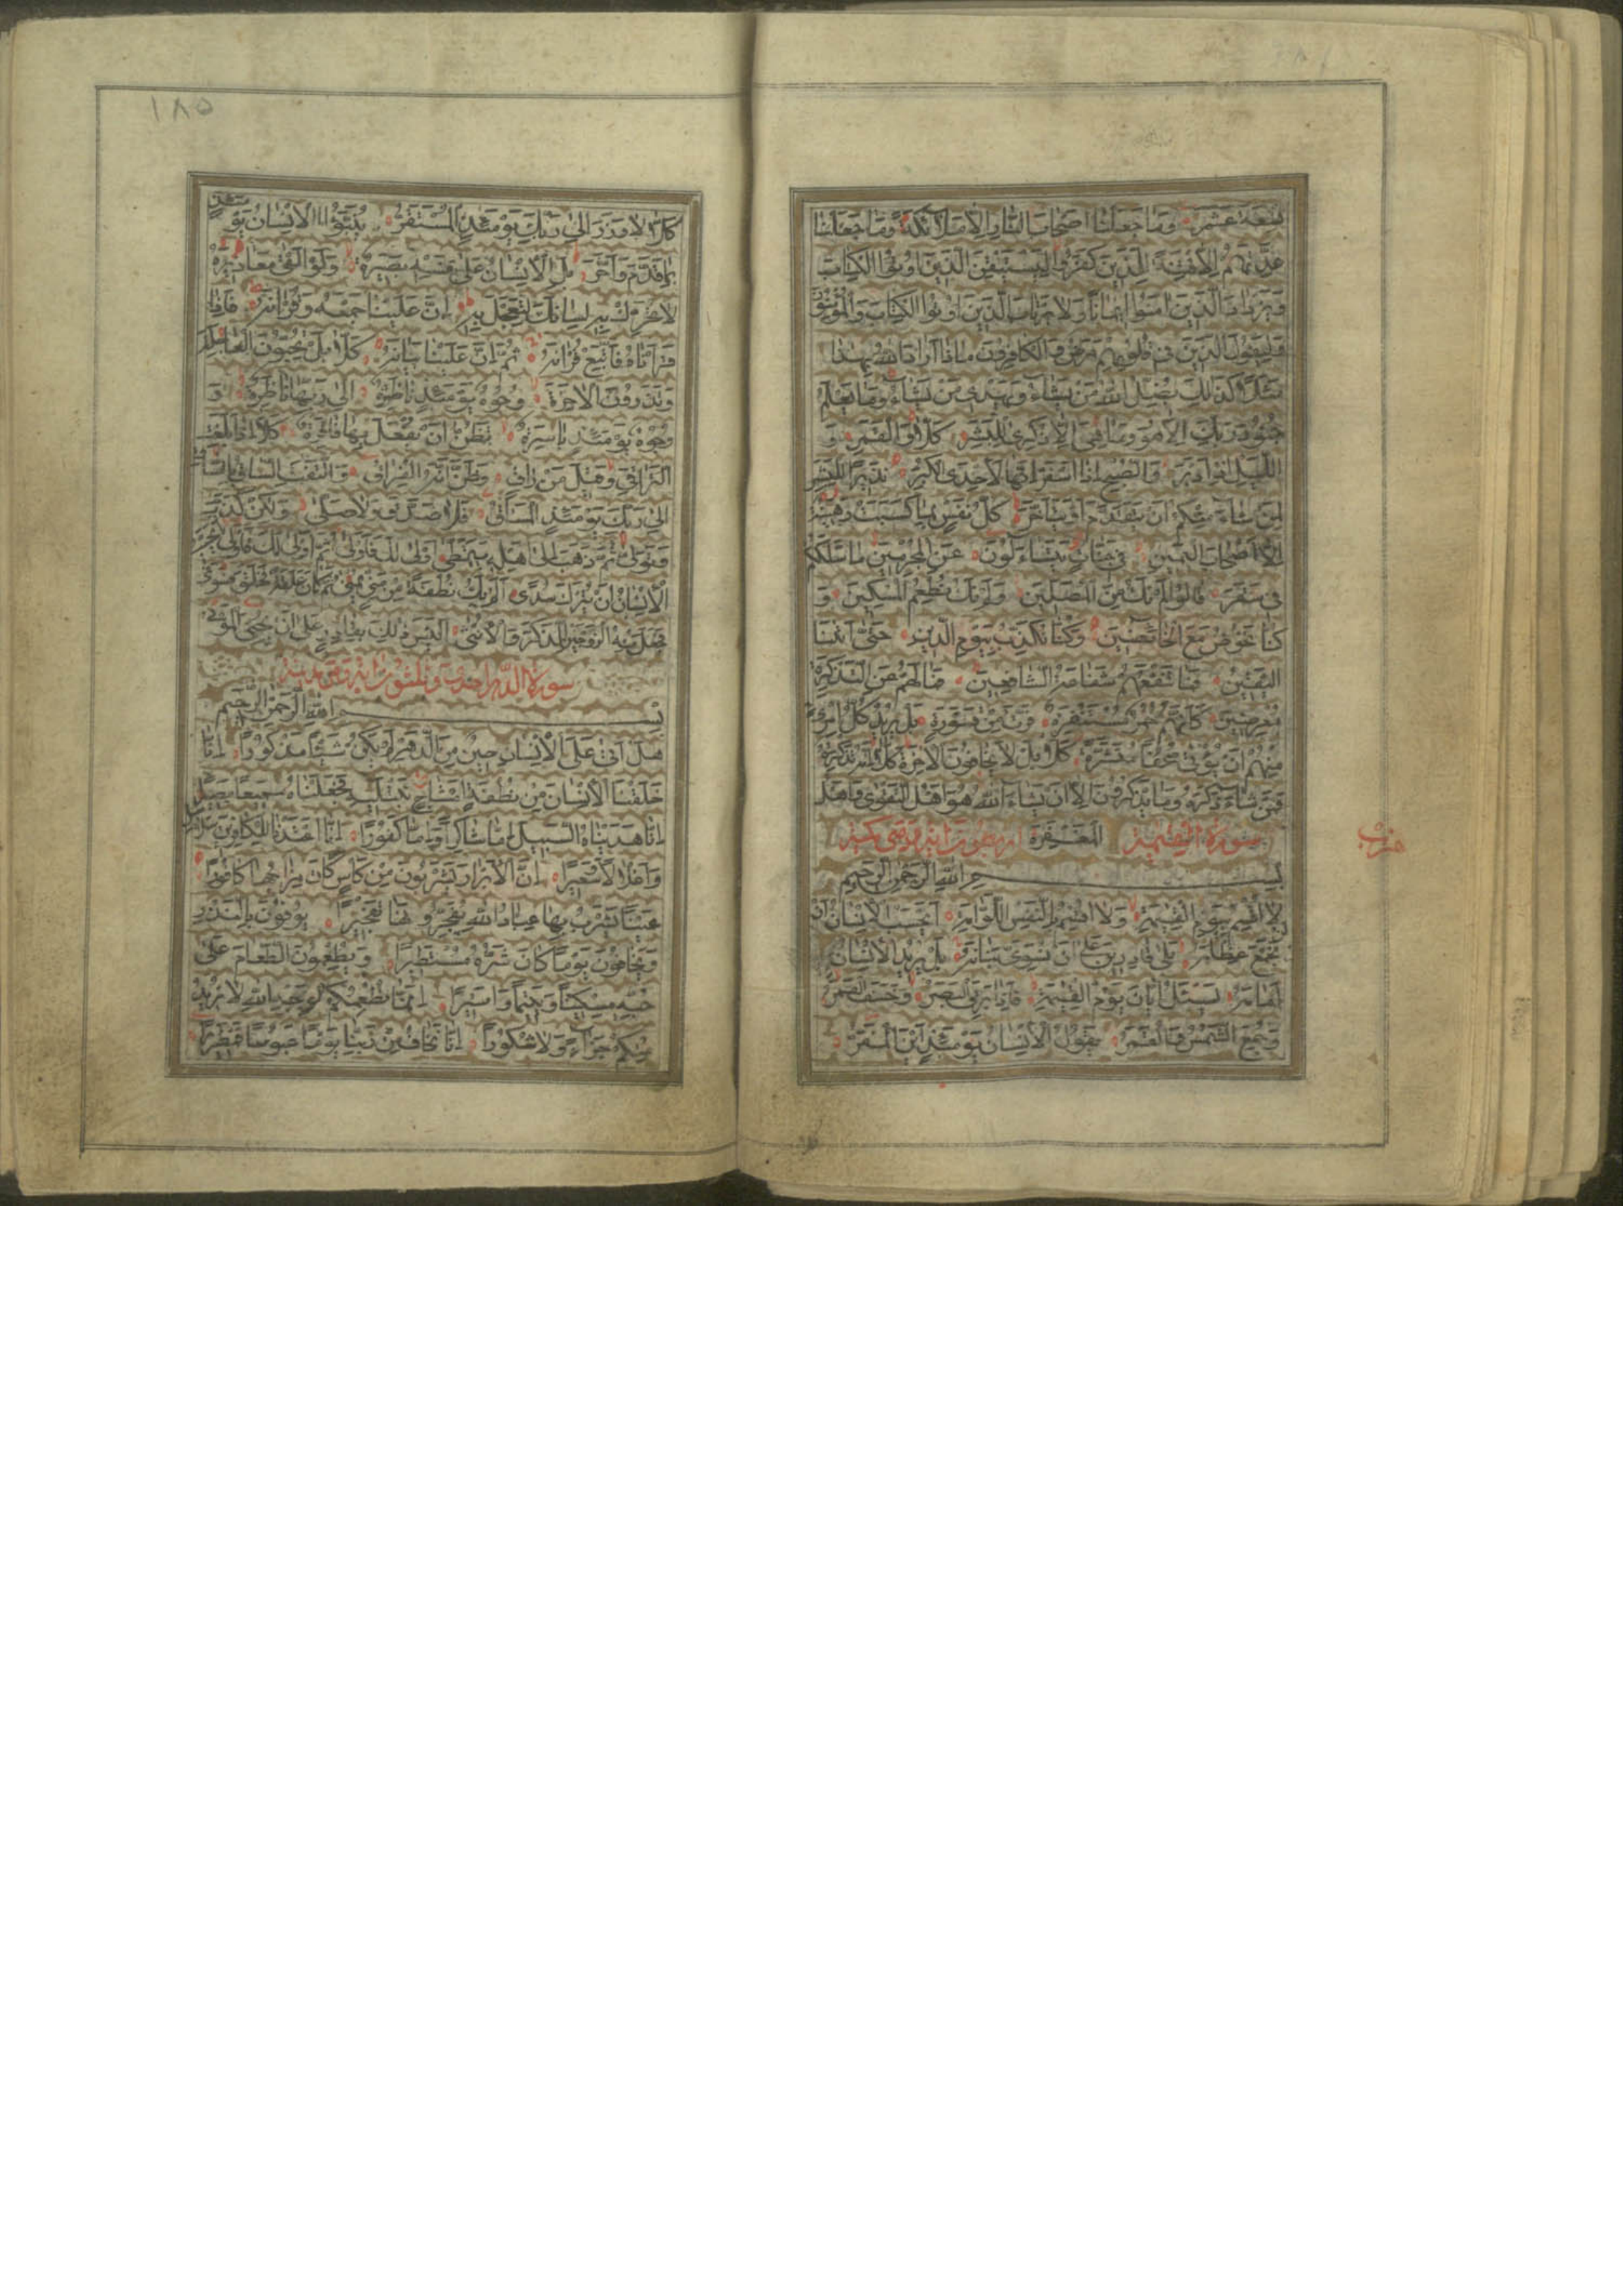 تسعة عشر وما جعلنا اصحاب النار الا ملائكة وما جعلنا
عدتهم الا فتنة للذين كفروا ليستيقن الذين اوتوا الكتاب
ويزداد الذين امنوا ايمانا ولا يرتاب الذين اوتوا الكتاب والمؤمنون
وليقول الذين في قلوبهم مرض والكافرون ماذا اراد الله بهذا
مثلا كذلك يضل الله من يشاء ويهدي من يشاء وما يعلم
جنود ربك الا هو وما هي الا ذكرى للبشر كلا والقمر و
الليل اذ ادبر والصبح اذا اسفر انها لاحدى الكبر نذيرا للبشر
لمن شاء منكم ان يتقدم او يتاخر كل نفس بما كسبت رهينة
الا اصحاب اليمين في جنات يتساءلون عن المجرمين ما سلككم
في سقر قالوا لم نك من المصلين ولم نك نطعم المسكين و
كنا نخوض مع الخائضين وكنا نكذب بيوم الدين حتى اتينا
اليقين فما تنفعهم شفاعة الشافعين فما لهم عن التذكرة
معرضين كانهم حمر مستنفرة فرت من قسورة بل يريد كل امرئ
منهم ان يؤتى صحفا منشرة كلا بل لا يخافون الاخرة كلا انه تذكرة
فمن شاء ذكره وما يذكرون الا ان يشاء الله هو اهل التقوى واهل
سورة القيمة المغفرة اربعون اية وهي مكية
حزب
بسم الله الرحمن الرحيم
لا اقسم بيوم القيمة ولا اقسم بالنفس اللوامة ايحسب الانسان ان
نجمع عظامه بلى قادرين على ان نسوي بنانه بل يريد الانسان
امامه يسئل ايان يوم القيمة فاذا برق البصر وخسف القمر
وجمع الشمس والقمر يقول الانسان يومئذ اين المفر
١٨٥
كلا لا وزر الى ربك يومئذ المستقر ينبؤا الانسان يومئذ
بما قدم واخر بل الانسان على نفسه بصيرة ولو القى معاذيره
لا تحرك به لسانك لتعجل به ان علينا جمعه وقرانه فاذا
قراناه فاتبع قرانه ثم ان علينا بيانه كلا بل تحبون العاجلة
وتذرون الاخرة وجوه يومئذ ناضرة الى ربها ناظرة و
وجوه يومئذ باسرة تظن ان يفعل بها فاقرة كلا اذا بلغت
التراقي وقيل من راق وظن انه الفراق والتفت الساق بالساق
الى ربك يومئذ المساق فلا صدق ولا صلى ولكن كذب
وتولى ثم ذهب الى اهله يتمطى اولى لك فاولى ثم اولى لك فاولى ايحسب
الانسان ان يترك سدى الم يك نطفة من مني يمنى ثم كان علقة فخلق فسوى
فجعل منه الزوجين الذكر والانثى اليس ذلك بقادر على ان يحيى الموتى
سورة الدهر احدى وثلثون اية وهي مدنية
بسم الله الرحمن الرحيم
هل اتى على الانسان حين من الدهر لم يكن شيئا مذكورا انا
خلقنا الانسان من نطفة امشاج نبتليه فجعلناه سميعا بصيرا
انا هديناه السبيل اما شاكرا واما كفورا انا اعتدنا للكافرين سلاسل
واغلالا وسعيرا ان الابرار يشربون من كاس كان مزاجها كافورا
عينا يشرب بها عباد الله يفجرونها تفجيرا يوفون بالنذر
ويخافون يوما كان شره مستطيرا ويطعمون الطعام على
حبه مسكينا ويتيما واسيرا انما نطعمكم لوجه الله لا نريد
منكم جزاء ولا شكورا انا نخاف من ربنا يوما عبوسا قمطريرا